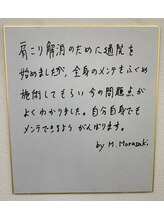 肩こり解消のために通院を
始めましたが、全身のメンテもふくめ
施術してもらい今の問題点が
よくわかりました。自分自身でも
メンテできるようがんばります。
by M.Murasaki